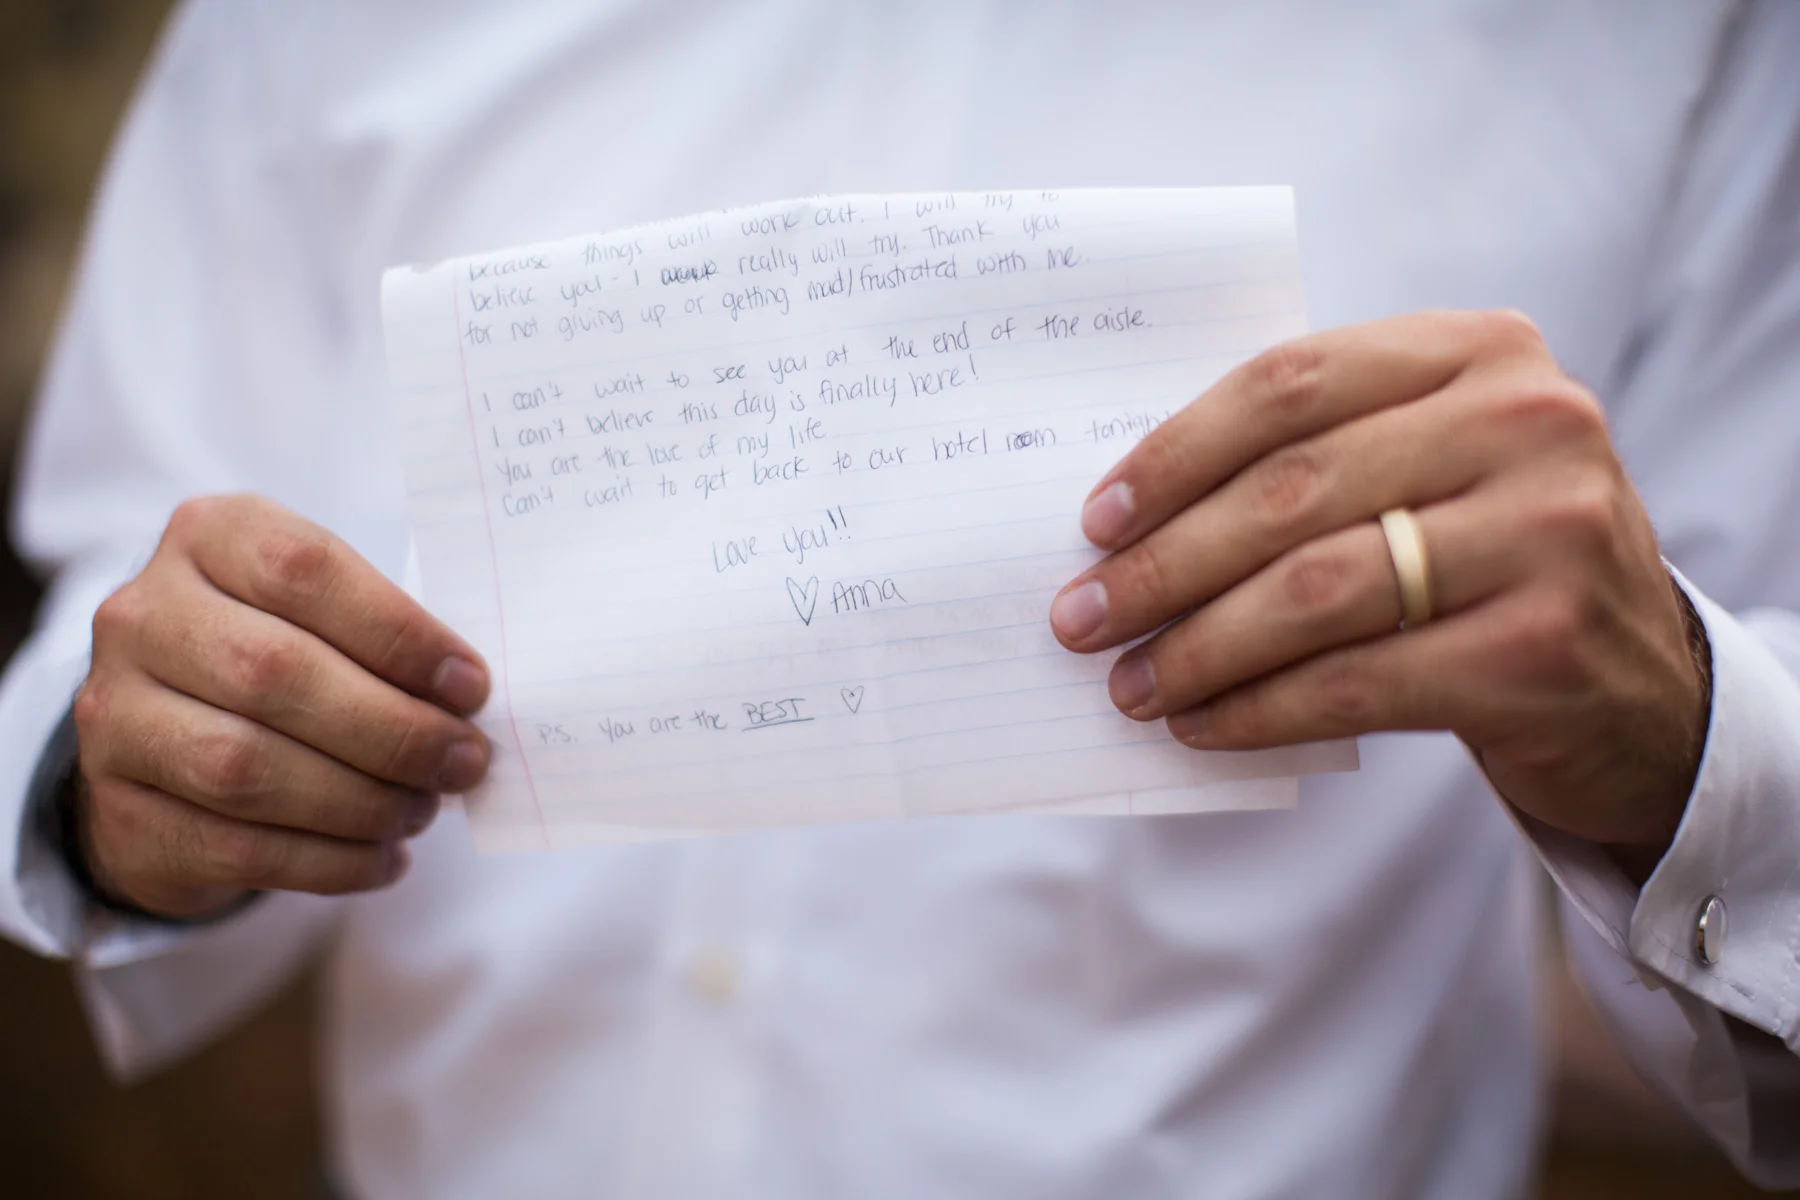 because things will work out. I will try to
believe you - I really will try. Thank you
for not giving up or getting mad/frustrated with me.
I can't wait to see you at the end of the aisle.
I can't believe this day is finally here!
You are the love of my life
Can't wait to get back to our hotel room tonigh
Love you!!
♡ Anna
P.S. You are the BEST ♡